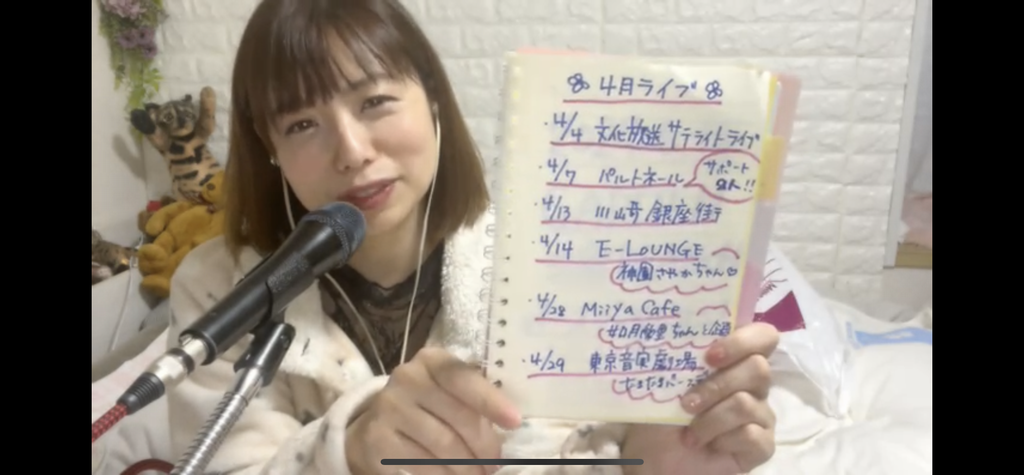 4月ライブ
・4/4 文化放送 サテライトライブ
・4/7 パルトネール
サポート
2人!!
・4/13 川崎銀座街
・4/14 E-LOUNGE
神園さやかちゃん♡
・4/28 Miiya Cafe
ちゃんと
・4/29 東京音実劇場
たまたまバースデー